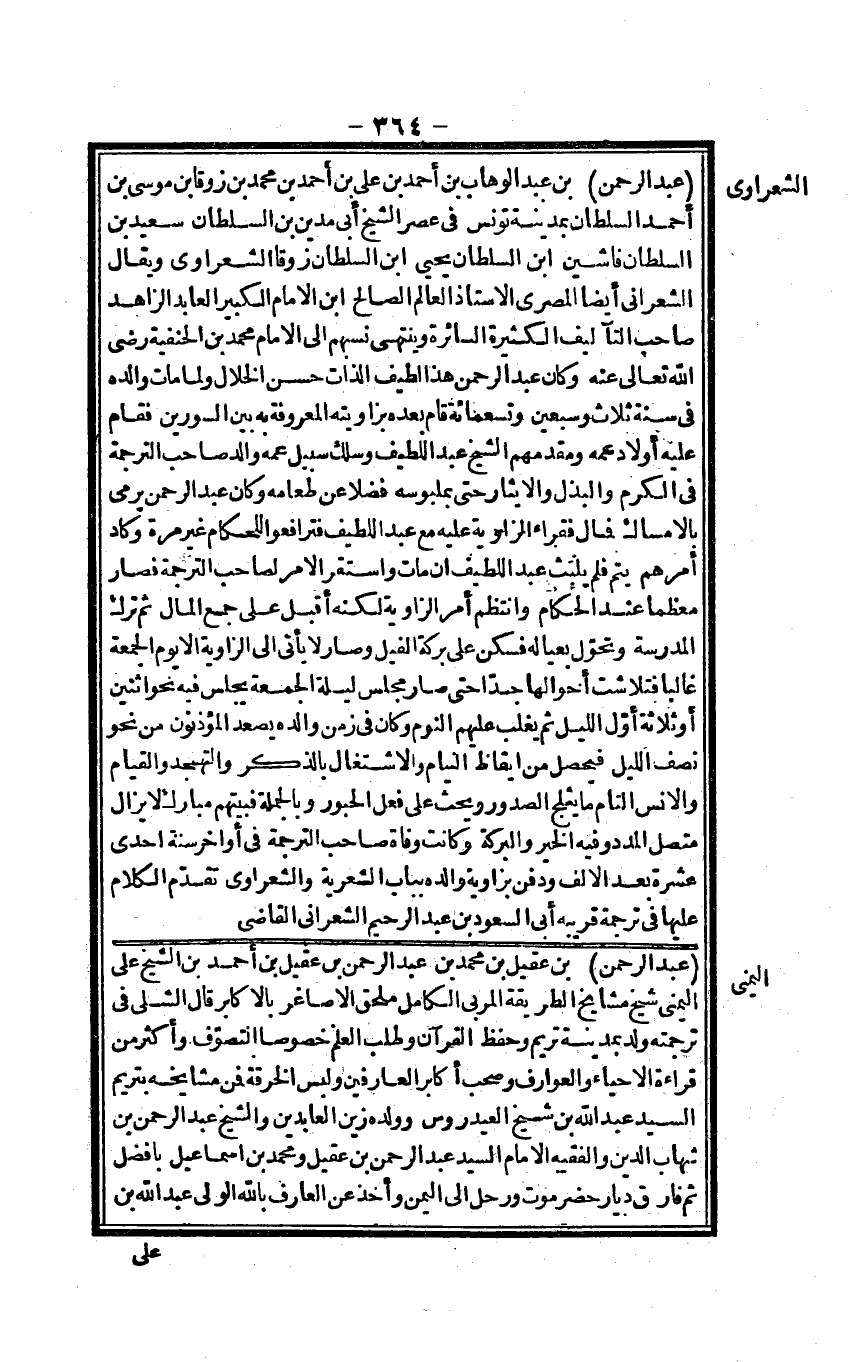 - ٣٦٤ -
الشعراوى
(عبد الرحمن) بن عبد الوهاب بن أحمد بن على بن أحمد بن محمد بن زوقا بن موسى بن
أحمد السلطان بمدينة تونس فى عصر الشيخ أبى مدين بن السلطان سعيد بن
السلطان فاشين ابن السلطان يحيى ابن السلطان زوقا الشعراوى ويقال
الشعرانى أيضا المصرى الاستاذ العالم الصالح ابن الامام الكبير العابد الزاهد
صاحب التآليف الكثيرة السائرة وينتهى نسبهم الى الامام محمد بن الحنفية رضى
الله تعالى عنه وكان عبد الرحمن هذا لطيف الذات حسن الخلال ولما مات والده
فى سنة ثلاث وسبعين وتسعمائة قام بعده بزاويته المعروفة به بين السورين فقام
عليه أولاد عمه ومقدمهم الشيخ عبد اللطيف وسلك سبيل عمه والد صاحب الترجمة
فى الكرم والبذل والايثار حتى بملبوسه فضلا عن طعامه وكان عبد الرحمن يرمى
بالامساك فمال فقراء الزاوية عليه مع عبد اللطيف فترافعوا للحكام غير مرة وكاد
أمرهم يتم فلم يلبث عبد اللطيف ان مات واستقر الامر لصاحب الترجمة فصار
معظما عند الحكام وانتظم أمر الزاوية لكنه أقبل على جمع المال ثم ترك
المدرسة وتحوّل بعياله فسكن على بركة الفيل وصار لا يأتى الى الزاوية الا يوم الجمعة
غالبا فتلاشت أحوالها جدّا حتى صار مجلس ليلة الجمعة يجلس فيه نحو اثنين
أو ثلاثة أوّل الليل ثم يغلب عليهم النوم وكان فى زمن والده يصعد المؤذنون من نحو
نصف الليل فيحصل من ايقاظ النيام والاشتغال بالذكر والتهجد والقيام
والانس التام ما يثلج الصدور ويحث على فعل الحبور وبالجملة فبيتهم مبارك لا يزال
متصل المدد وفيه الخير والبركة وكانت وفاة صاحب الترجمة فى أواخر سنة احدى
عشرة بعد الالف ودفن بزاوية والده بباب الشعرية والشعراوى تقدّم الكلام
عليها فى ترجمة قريبه أبى السعود بن عبد الرحيم الشعرانى القاضى
اليمنى
(عبد الرحمن) بن عقيل بن محمد بن عبد الرحمن بن عقيل بن أحمد بن الشيخ على
اليمنى شيخ مشايخ الطريقة المربى الكامل ملحق الاصاغر بالاكابر قال الشلى فى
ترجمته ولد بمدينة تريم وحفظ القرآن وطلب العلم خصوصا التصوّف وأكثر من
قراءة الاحياء والعوارف وصحب أكابر العارفين ولبس الخرقة فمن مشايخه بتريم
السيد عبد الله بن شيخ العيدروس وولده زين العابدين والشيخ عبد الرحمن بن
شهاب الدين والفقيه الامام السيد عبد الرحمن بن عقيل ومحمد بن اسماعيل بافضل
ثم فارق ديار حضرموت ورحل الى اليمن وأخذ عن العارف بالله الولى عبد الله بن
على